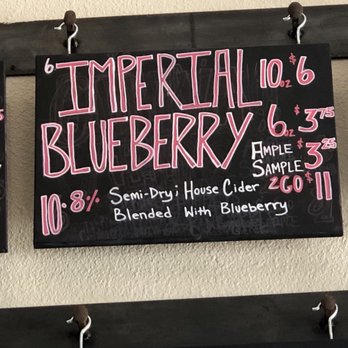 6 IMPERIAL 10oz $6
BLUEBERRY 6oz $3.75
AMPLE SAMPLE $3.25
10.8% Semi-Dry; House Cider 2GO $11
Blended With Blueberry